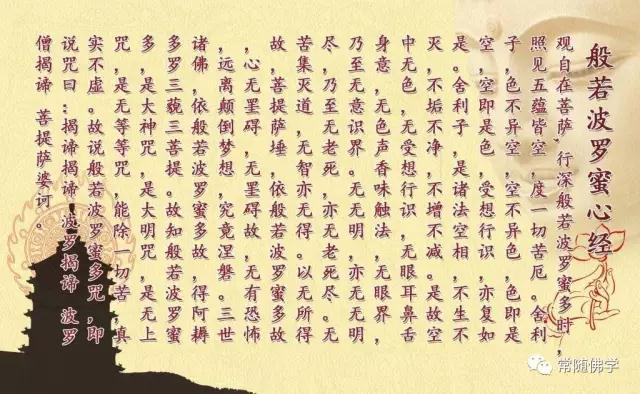 般若波罗蜜心经
观自在菩萨,行深般若波罗蜜多时,
照见五蕴皆空,度一切苦厄。舍利
子,色不异空,空不异色,色即是
空,空即是色,受想行识,亦复如
是。舍利子,是诸法空相,不生不
灭,不垢不净,不增不减。是故空
中无色,无受想行识,无眼耳鼻舌
身意,无色声香味触法,无眼界,
乃至无意识界。无无明,亦无无明
尽,乃至无老死,亦无老死尽。无
苦集灭道,无智亦无得。以无所得
故,菩提萨埵,依般若波罗蜜多故
,心无罣碍,无罣碍故,无有恐怖
,远离颠倒梦想,究竟涅磐。三世
诸佛,依般若波罗蜜多故,得阿耨
多罗三藐三菩提。故知般若波罗蜜
多,是大神咒,是大明咒,是无上
咒,是无等等咒,能除一切苦,真
实不虚。故说般若波罗蜜多咒,即
说咒曰:揭谛揭谛 波罗揭谛 波罗
僧揭谛 菩提萨婆诃。
常随佛学